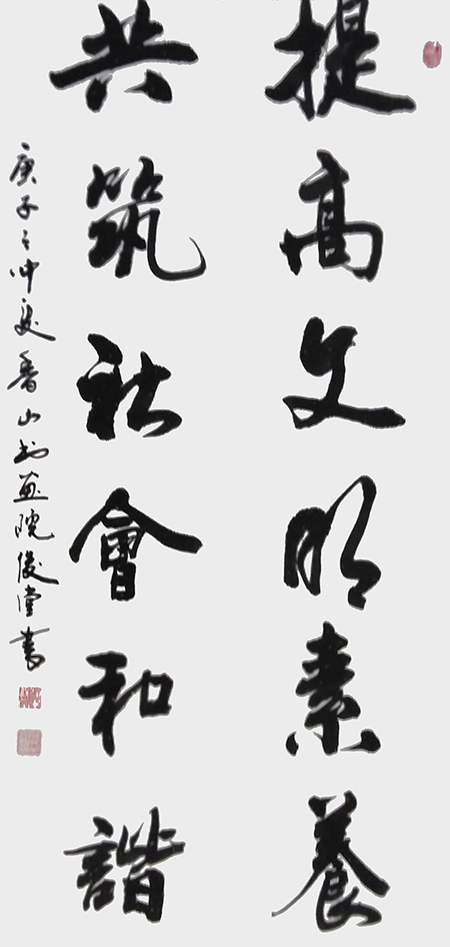 提高文明素養
共筑社會和諧
庚子之仲夏香山书画院俊堂書